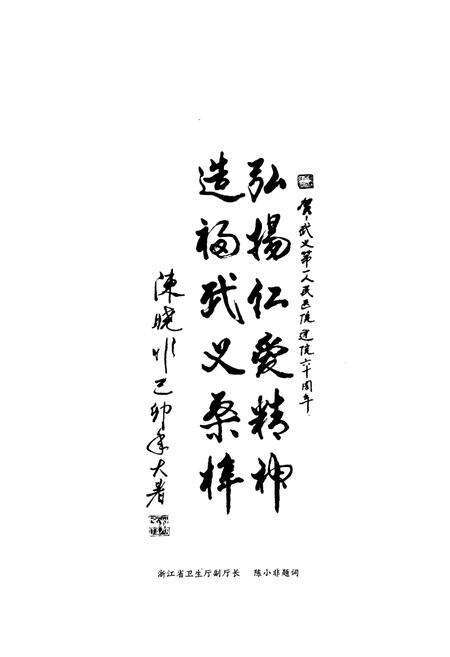 贺武义第一人民医院建院六十周年
弘揚仁愛精神
造福武义桑梓
陳曉非己卯年大暑
浙江省卫生厅副厅长 陈小非题词